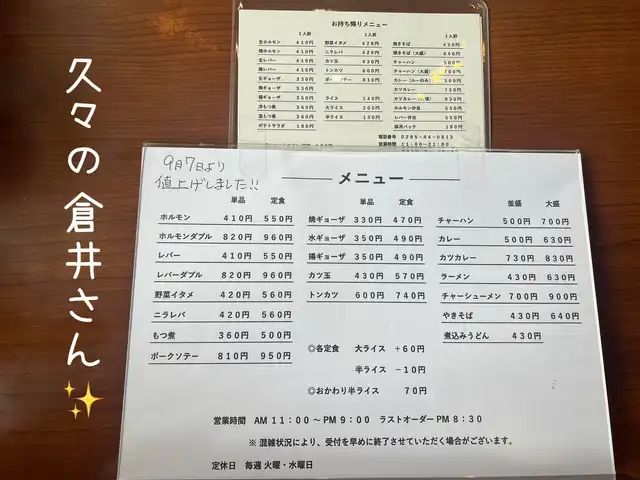 久々の倉井さん✨
お持ち帰りメニュー
1人前 1人前 1人前
生ホルモン 410円 野菜イタメ 420円 焼きそば 430円
焼ホルモン 410円 ニラレバ 420円 焼きそば(大盛) 640円
生レバー 410円 カツ玉 430円 チャーハン 500円
焼レバー 410円 トンカツ 600円 チャーハン(大盛) 700円
生ギョーザ 330円 310円 カレー(ルーのみ) 360円
焼ギョーザ 330円 カツカレー 730円
揚ギョーザ 350円 ライス 140円 カツカレー 830円
冷もつ煮 360円 大ライス 200円 ホルモン弁当 550円
温もつ煮 360円 半ライス 130円 レバー弁当 550円
ポテトサラダ 180円 保冷パック 180円
電話番号 0285-44-0813
営業時間 11:00~21:00
9月7日より
値上げしました!!
メニュー
単品 定食 単品 定食 並盛 大盛
ホルモン 410円 550円 焼ギョーザ 330円 470円 チャーハン 500円 700円
ホルモンダブル 820円 960円 水ギョーザ 350円 490円 カレー 500円 630円
レバー 410円 550円 揚ギョーザ 350円 490円 カツカレー 730円 830円
レバーダブル 820円 960円 カツ玉 430円 570円 ラーメン 430円 630円
野菜イタメ 420円 560円 トンカツ 600円 740円 チャーシューメン 700円 900円
ニラレバ 420円 560円 やきそば 430円 640円
もつ煮 360円 500円 煮込みうどん 430円
ポークソテー 810円 950円
◎各定食 大ライス +60円
半ライス -10円
◎おかわり半ライス 70円
営業時間 AM 11:00~PM 9:00 ラストオーダーPM 8:30
※ 混雑状況により、受付を早めに終了させていただく場合がございます。
定休日 毎週 火曜・水曜日